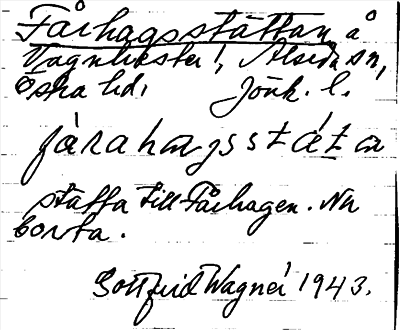 Fårhagsstättan å
Vagnhester!, Alseda sn,
Östra hd. Jönk. l.
fårahagsstätan
stätta till Fårhagen. Nu
borta.
Gottfrid Wagner 1943.